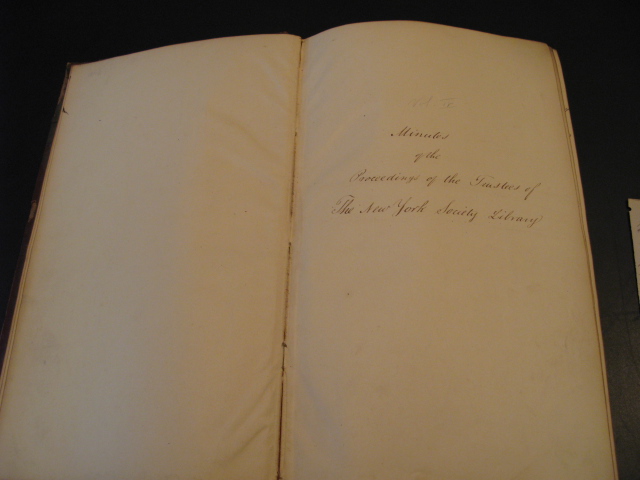 Vol.
Minutes
of the
Proceedings of the Trustees of
The New York Society Library